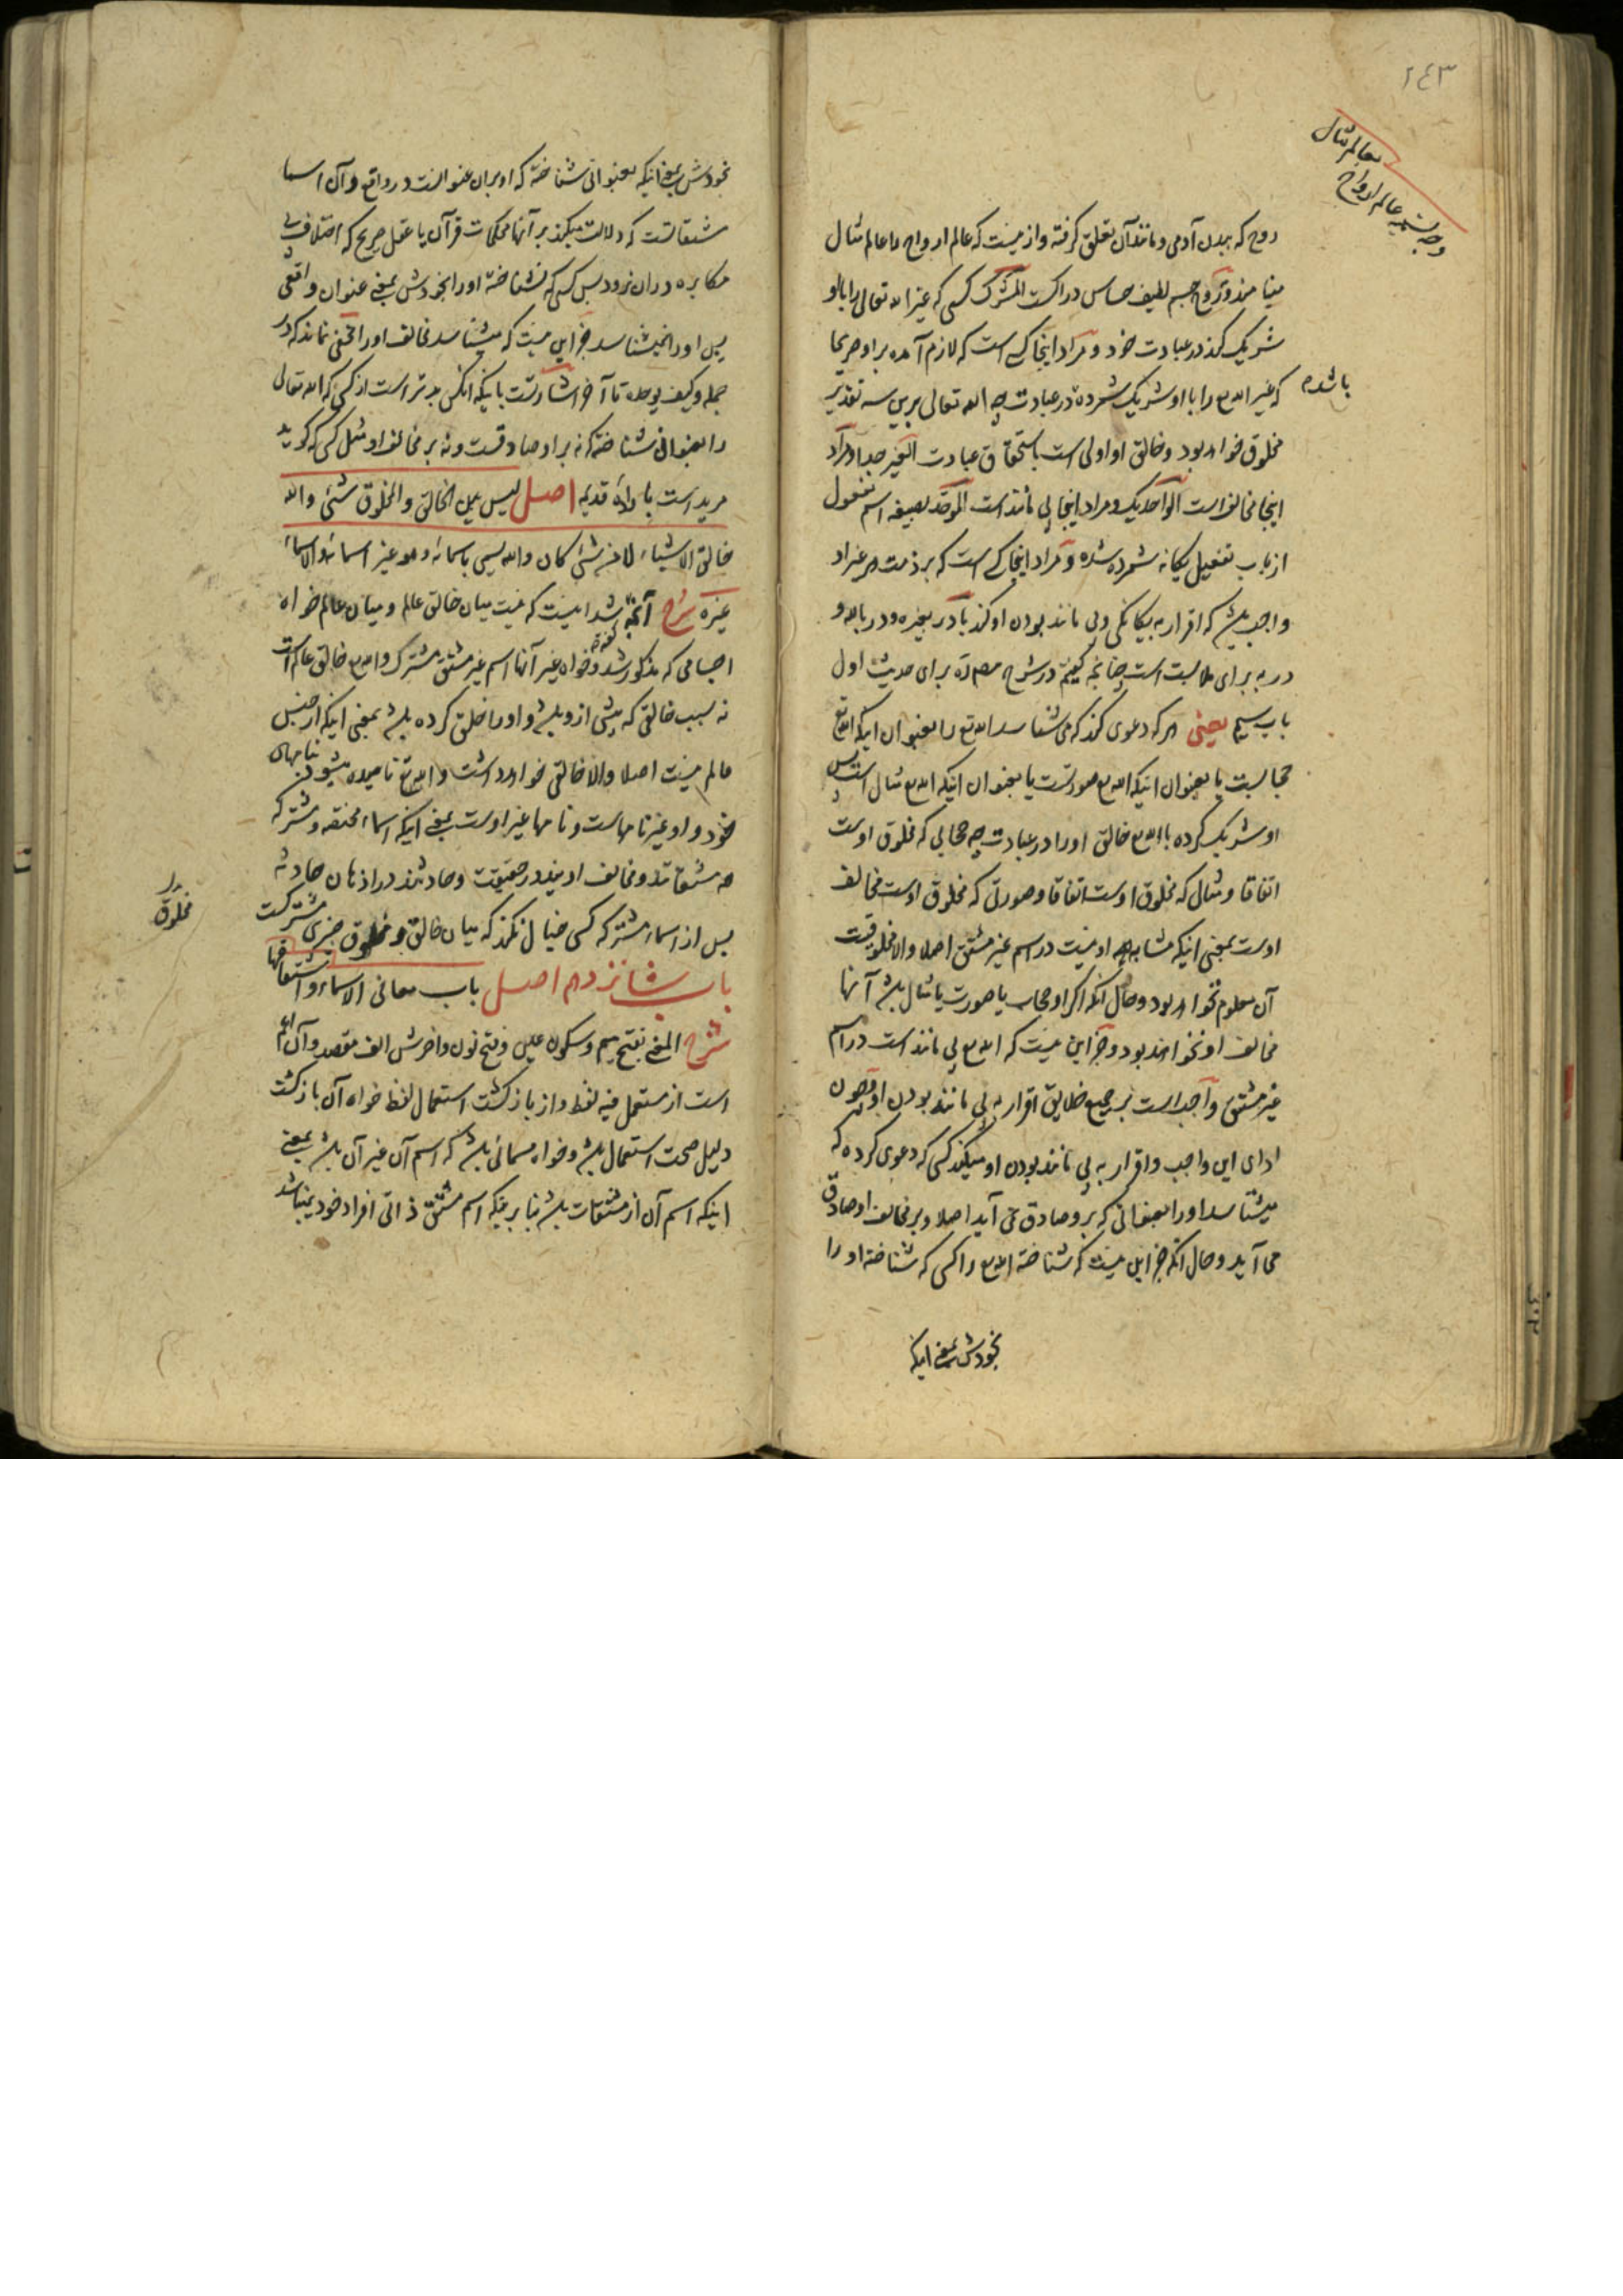 ٢٤٣
وجه تسمیه عالم ارواح
بعالم مثال
روح که ببدن آدمی و مانند آن تعلق گرفته و از اینست که عالم ارواح را عالم مثال
مینامند و روح جسم لطیف حساس دراکست المشرک کسی که غیر الله تعالی را با او
شریک کند در عبادت خود و مراد اینجا کسی است که لازم آمده بر او صریحا
باشد
که غیر الله تع را با او شریک شمرده در عبادت چه الله تعالی برین سه تقدیر
مخلوق خواهد بود و خالق او اولی است باستحقاق عبادت الغیر جدا و مراد
اینجا مخالف است الواحد یک و مراد اینجا بی مانند است الموحد بصیغه اسم مفعول
از باب تفعیل یکانه شمرده شده و مراد اینجا کسی است که بر ذمت هر عبد او
واجب باشد که اقرار به بیکانکی و بی مانند بودن او کند با در بغیره و در بالله و
در به برای ملابست است چنانچه کفتیم در شرح برای حدیث اول
باب سیم یعنی هر که دعوی کند که می شناسد الله تع را بعنوان اینکه الله تع
حجابست یا بعنوان اینکه الله تع صورتست یا بعنوان اینکه الله تع مثال است پس
او شریک کرده با الله تع خالق او را در عبادت چه حجابی که مخلوق اوست
اتفاقا و مثال که مخلوق اوست اتفاقا و صورتی که مخلوق اوست مخالف
اوست بمعنی اینکه مشابه او نیست در اسم غیر مشتق اصلا و الا مخلوقیت
آن معلوم نخواهد بود و حال آنکه اکر او حجاب یا صورت یا مثال باشد آنها
مخالف او نخواهند بود و جز این نیست که الله تع بی مانند است در اسم
غیر مشتق و واجب است بر جمیع خلایق اقرار به بی مانند بودن او پس چون
ادای این واجب و اقرار به بی مانند بودن او میکند کسی که دعوی کرده که
میشناسد او را بصفاتی که برو صادق نمی آید اصلا و بر مخالف او صادق
می آید و حال آنکه جز این نیست که شناخته الله تع را کسی که شناخته او را
بخودش بمعنی اینکه
بخودش بمعنی اینکه بعنوانی شناخته که او بران عنوانست در واقع و آن اسما
مشتقاتست که دلالت میکند بر آنها محکمات قرآن یا عقل صریح که اختلاف بی
مکابره در ان نرود پس کسی که نشناخته او را بخودش بمعنی عنوان واقعی
پس او را نمیشناسد جز این نیست که میشناسد مخالف او را مخفی نماند که در
جمله و کیف یوحده تا آخر اشارتست باینکه آنکس بدتر است از کسی که الله تعالی
را بعنوانی شناخته که نه بر او صادقست و نه بر مخالف او مثل کسی که کوید
مرید است باراده قدیمه اصل لیس بین الخالق والمخلوق شئ والله
خالق الاشیاء لا من شئ کان والله یسمی باسمائه وهو غیر اسمائه والاسماء
غیره شرح آنچه کفته شد اینست که نیست میان خالق عالم و میان عالم خواه
اجسامی که مذکور شد و خواه غیر آنها اسم غیر مشتق مشترک و الله تع خالق عالم است
نه بسبب خالقی که پیش ازو باشد و او را خلق کرده باشد بمعنی اینکه از جنس
عالم نیست اصلا و الا خالقی خواهد داشت و الله تع نامیده میشود بنامهای
خود و او غیر نامهاست و نامها غیر اوست بمعنی اینکه اسماء مختصه و مشترکه
همه مشتقاتند و مخالف اویند در حقیقت و حادثند در اذهان حادثه
پس از اسماء مشترکه کسی خیال نکند که میان خالق و مخلوق چیزی مشترکست
مخلوق
باب شانزدهم اصل باب معانی الاسماء واشتقاقها
شرح المعنی بفتح میم و سکون عین و فتح نون و اخرش الف مقصوره و آن اعم
است از مستعمل فیه لفظ و از بازکشت استعمال لفظ خواه آن بازکشت
دلیل صحت استعمال باشد و خواه مسمائی باشد که اسم آن غیر آن باشد بمعنی
اینکه اسم آن از مشتقات باشد بنا برینکه اسم مشتق ذاتی افراد خود نمیباشد